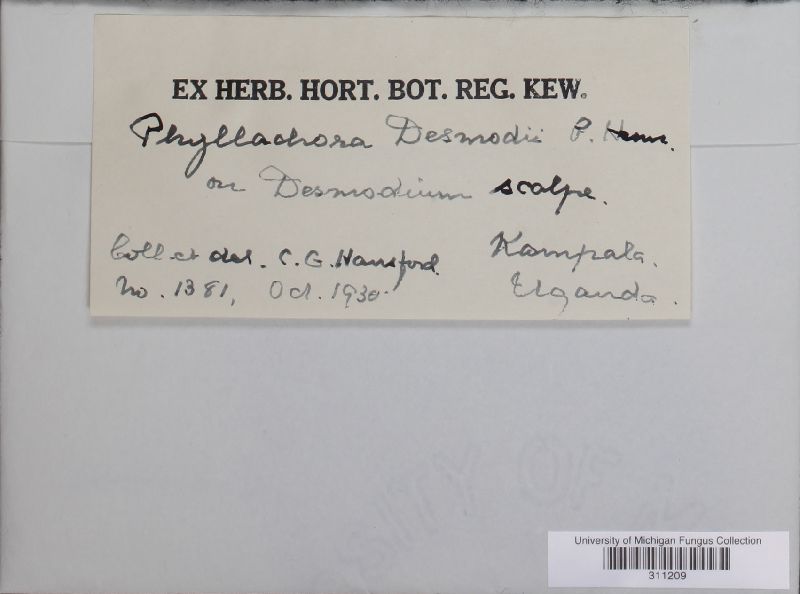 EX HERB. HORT. BOT. REG. KEW.
Phyllachora Desmodii P. Henn.
on Desmodium scalpe.
Coll et det. C.G. Hansford. Kampala.
No. 1381, Oct. 1930. Uganda.
University of Michigan Fungus Collection
311209